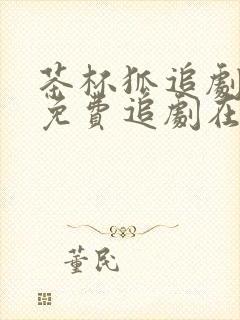 茶杯狐追劇
免費追劇在
董民